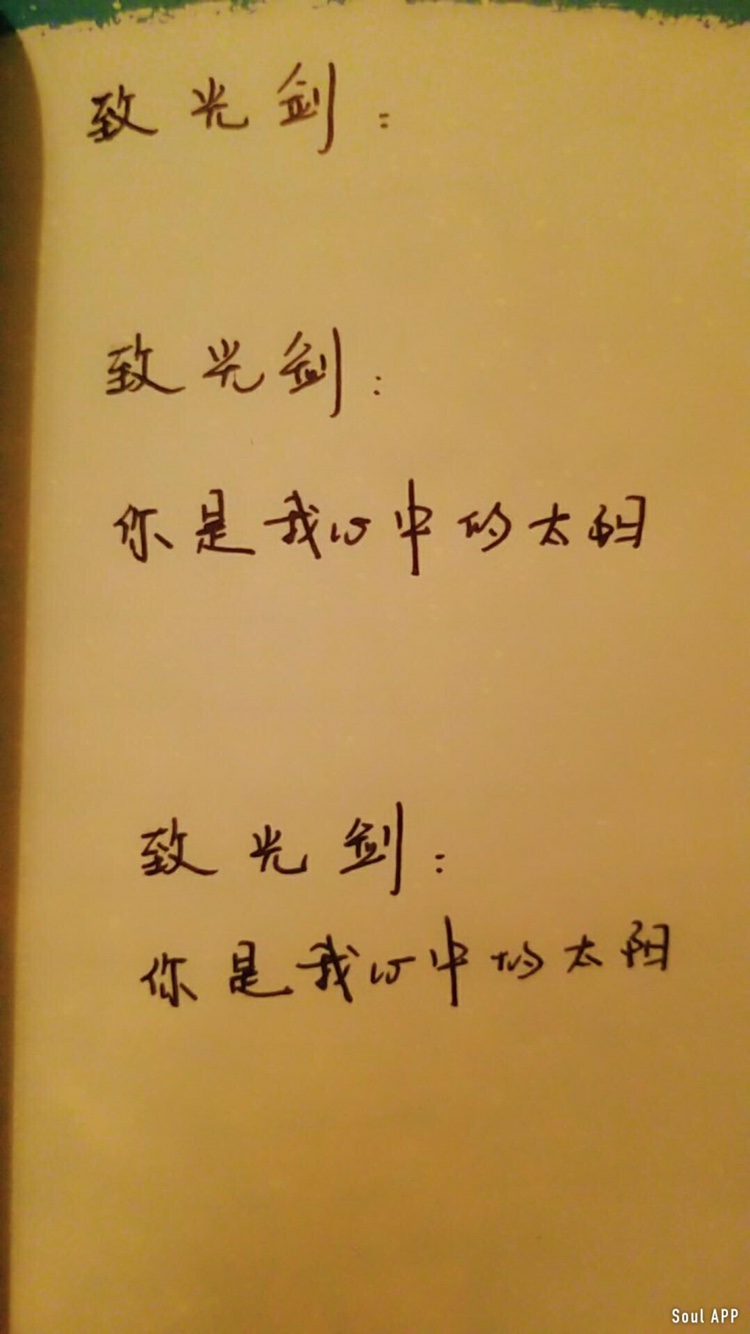 致光剑：
致光剑：
你是我心中的太阳
致光剑：
你是我心中的太阳
Soul APP